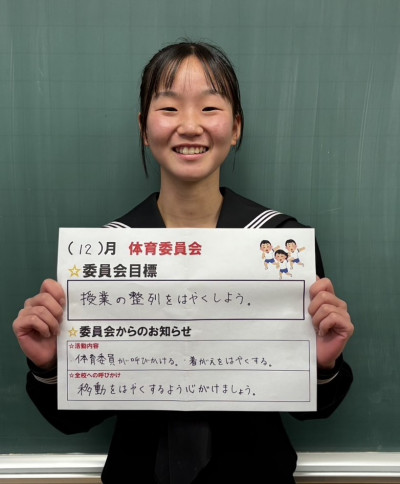 (12)月 体育委員会
☆委員会目標
授業の整列をはやくしよう。
☆委員会からのお知らせ
☆活動内容
・体育委員が呼びかける。・着がえをはやくする。
☆全校への呼びかけ
移動をはやくするよう心がけましょう。